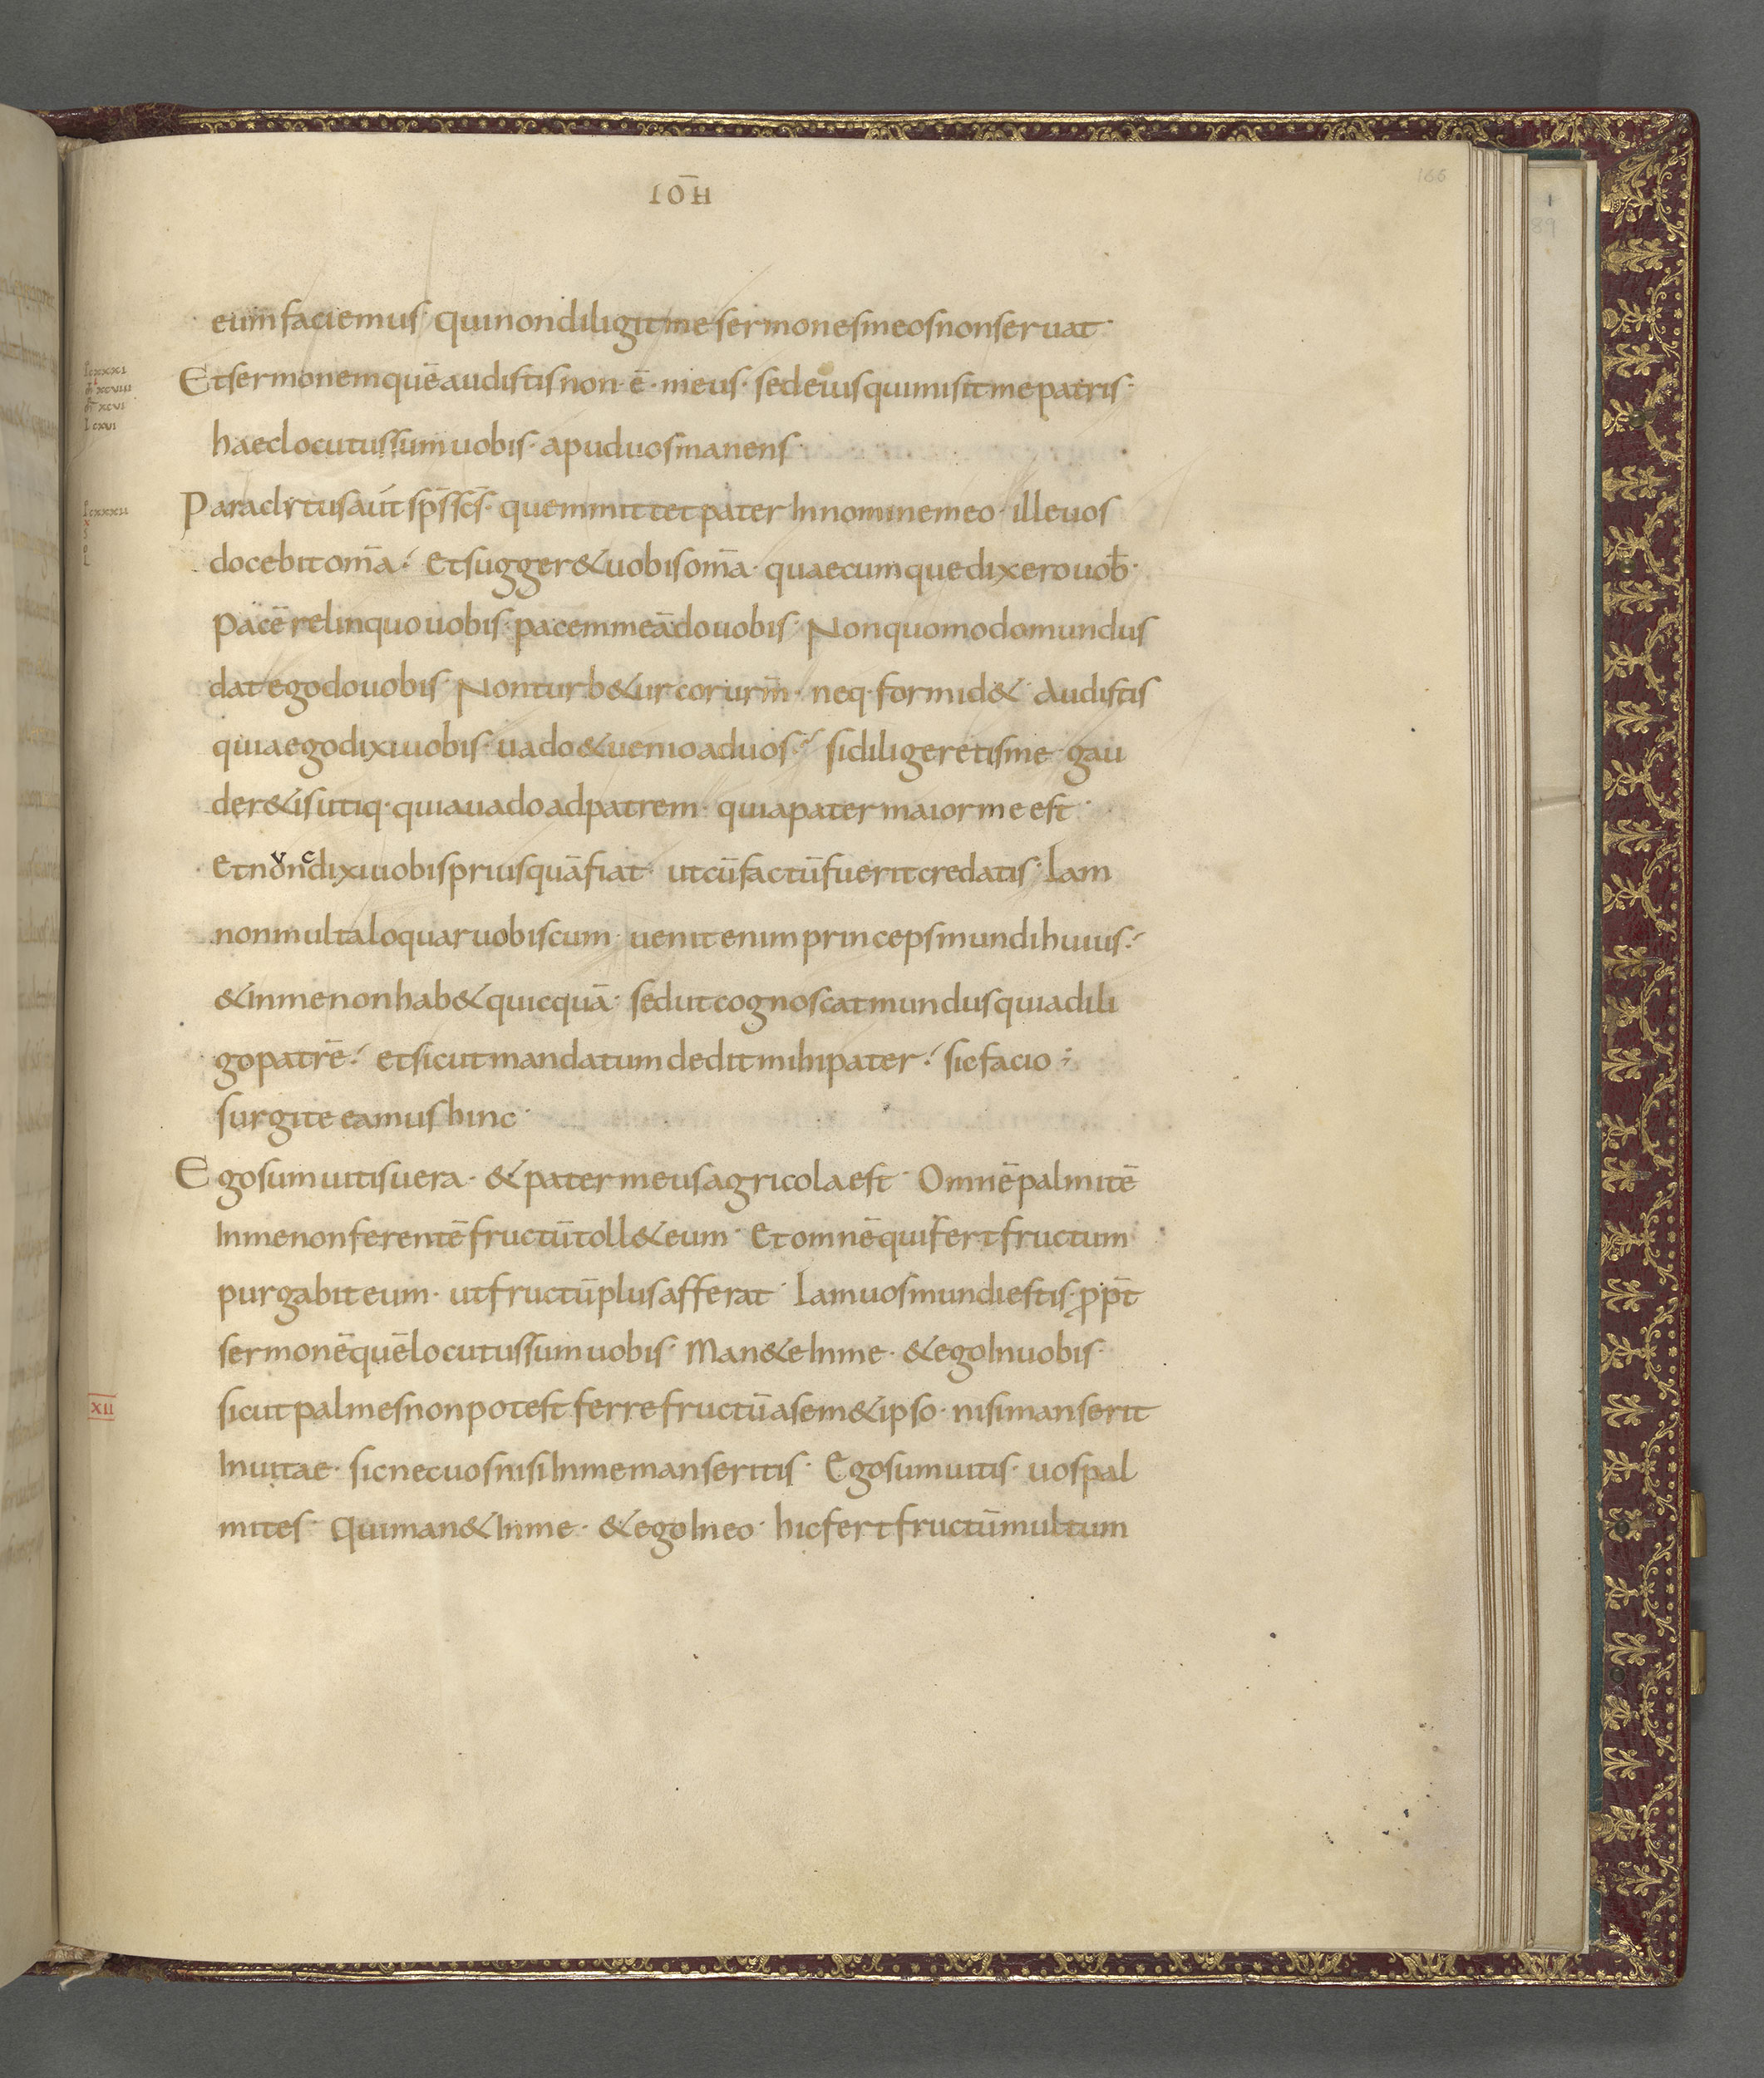 IOH̄
166
eum faciemus· qui non diligit me sermones meos non seruat·
Et sermonem quē audistis non·ē·meus· sed eius qui misit me patris·
haec locutus sum uobis· apud uos manens·
Paraclytus aut̄ sp̄s sc̄s· quem mittet pater In nomine meo· ille uos
docebit om̄a· et sugger& uobis om̄a· quaecumque dixero uob̄·
pacē relinquo uobis· pacem meā do uobis· Non quomodo mundus
dat ego do uobis· Non turb&ur cor urm̄· neq· formid&· Audistis
quia ego dixi uobis· uado & uenio ad uos· si diligeretis me· gau
der&is utiq· quia uado ad patrem· quia pater maior me est·
et nunc dixi uobis priusquā fiat· ut cū factū fuerit credatis· Iam
non multa loquar uobiscum· uenit enim princeps mundi huius·
& In me non hab& quicquā· sed ut cognoscat mundus quia dili
go patrē· et sicut mandatum dedit mihi pater· sic facio·
surgite eamus hinc·
Ego sum uitis uera· & pater meus agricola est· Omnē palmitē
In me non ferentē fructū toll& eum· Et omnē qui fert fructum
purgabit eum· ut fructū plus afferat· Iam uos mundi estis· propt̄
sermonē quē locutus sum uobis· Man&e In me· & ego In uobis·
sicut palmes non potest ferre fructū a sem&ipso· nisi manserit
In uitae· sic nec uos nisi In me manseritis· Ego sum uitis· uos pal
mites· Qui man& In me· & ego In eo· hic fert fructū multum
XII
1
89